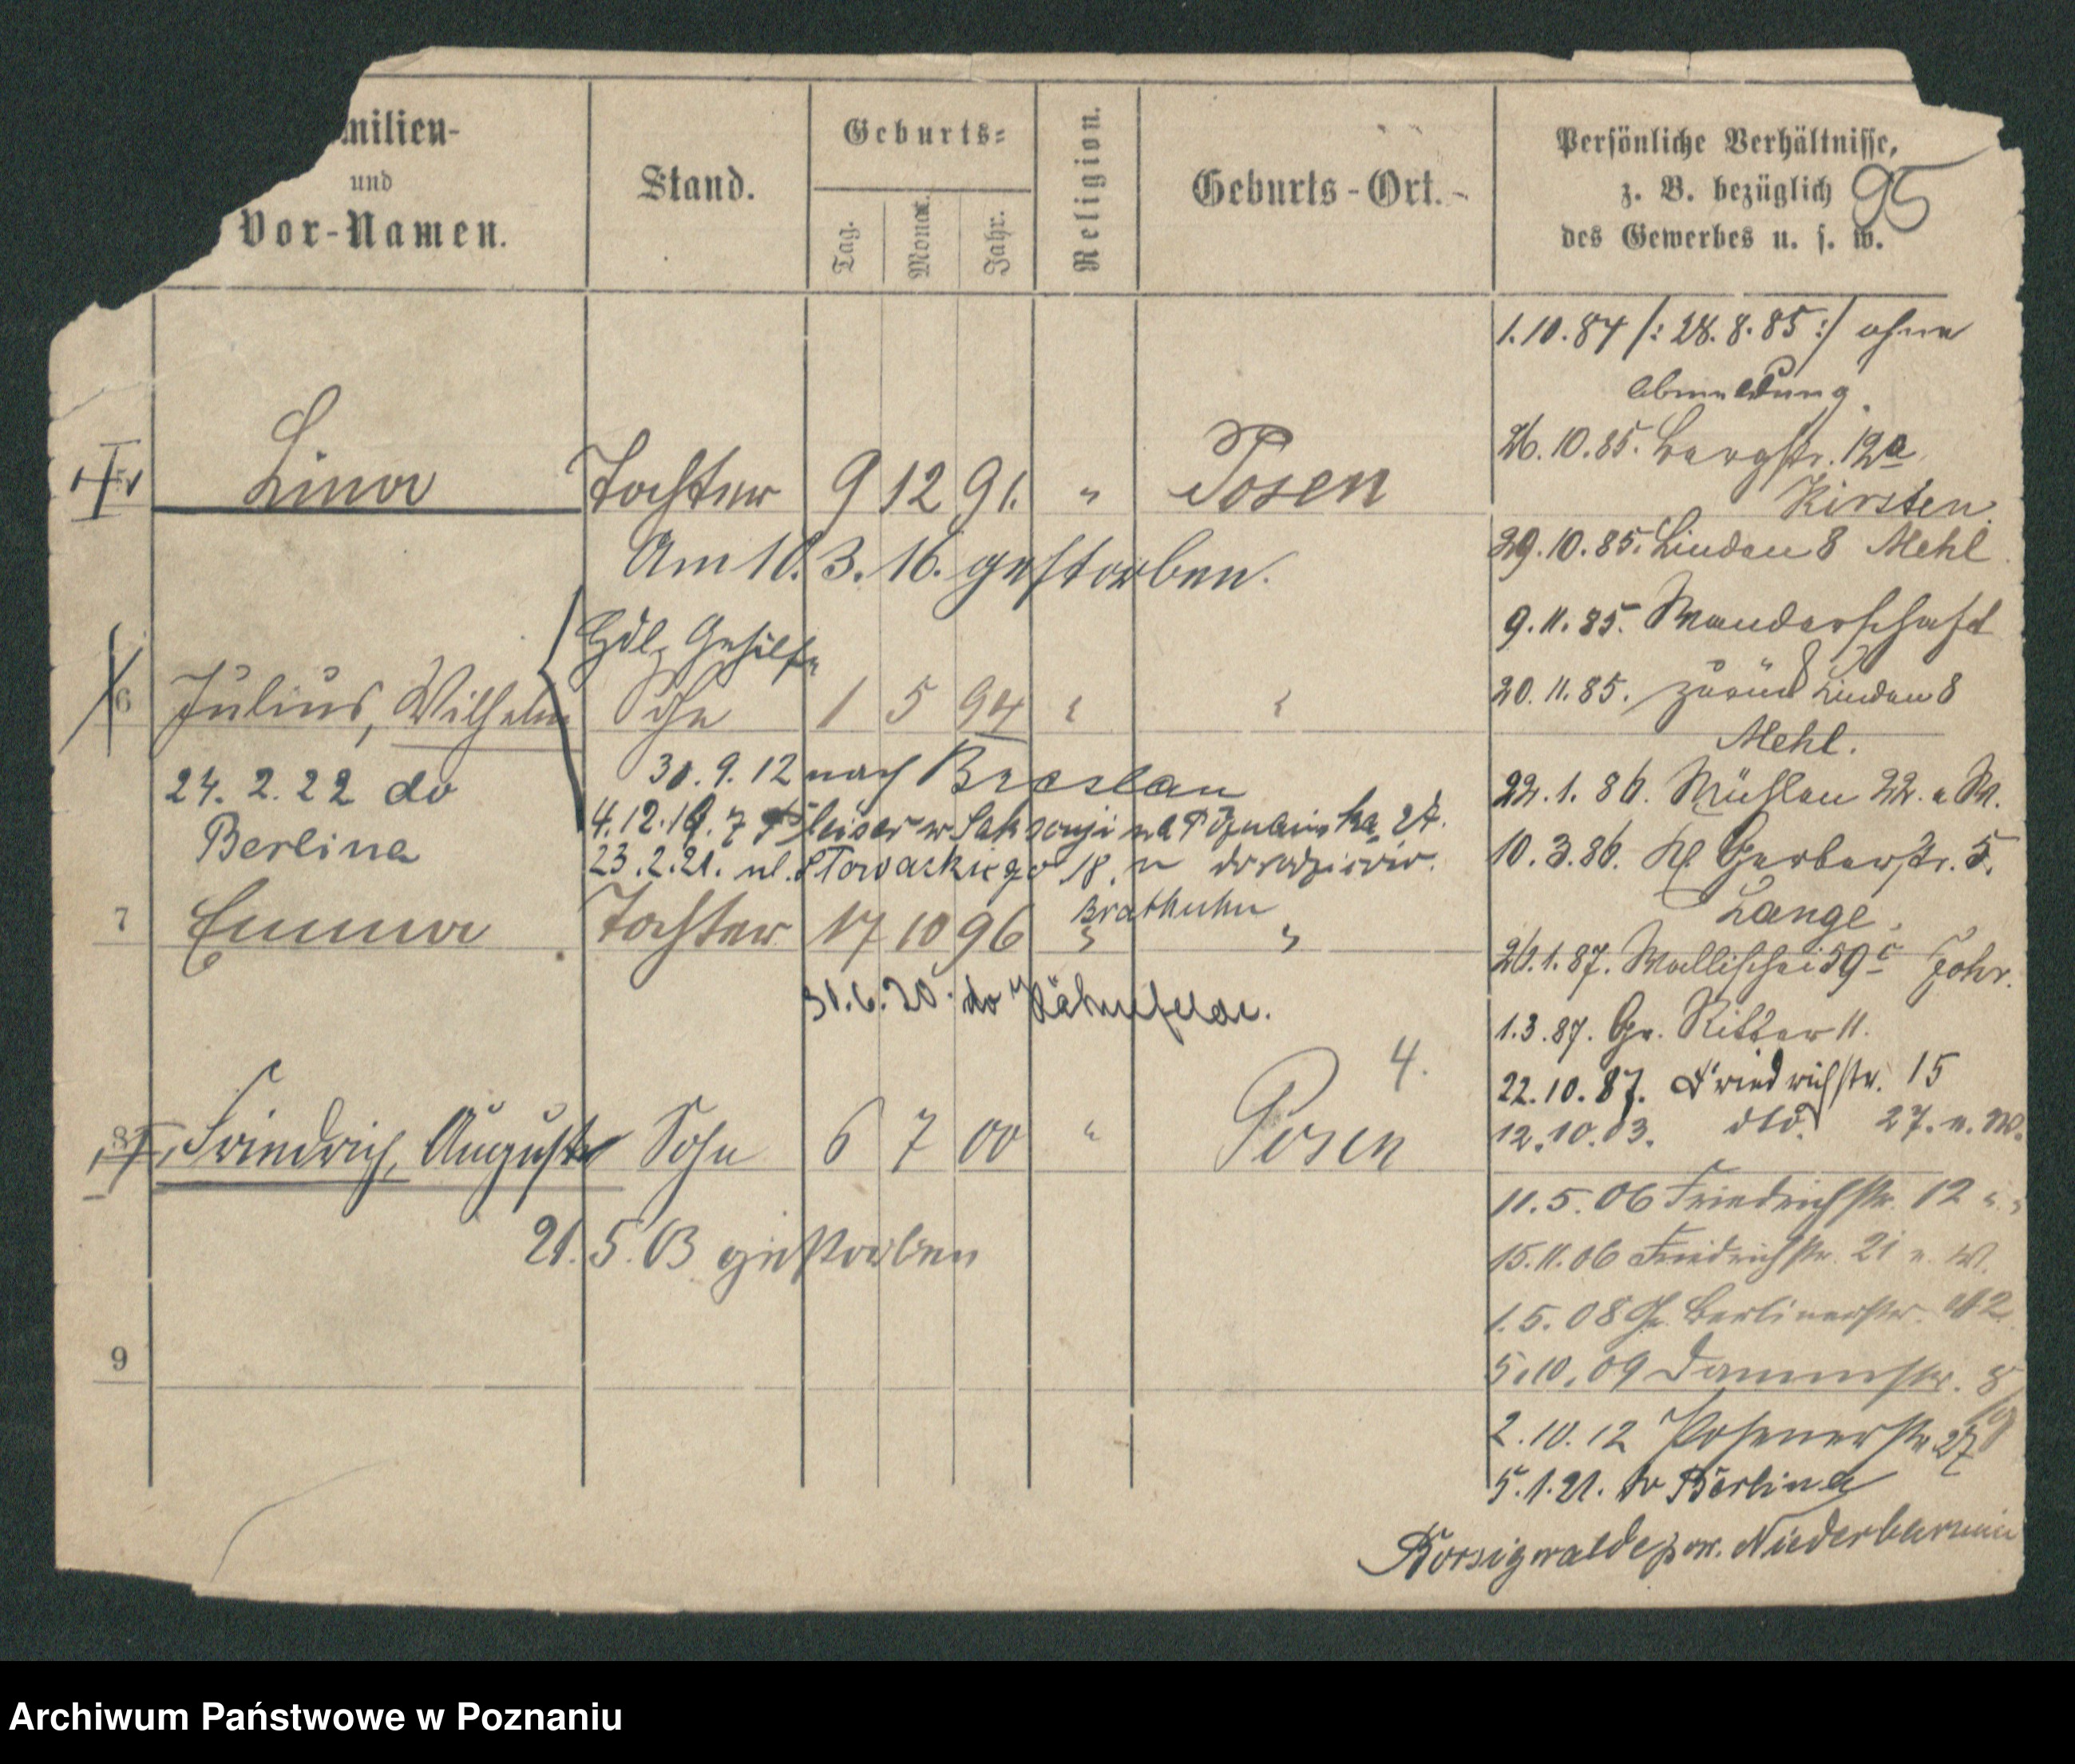 milien-
und
Vor-Namen.
Stand.
Geburts-
Tag.
Monat.
Jahr.
Religion.
Geburts-Ort.
Persönliche Verhältnisse,
z. B. bezüglich
des Gewerbes u. s. w.
95
1.10.84 /: 28.8.85 :/ ohne
Abmeldung.
26.10.85. Bergstr. 12a
Kirsten.
29.10.85. Lindau 8 Mehl
9.11.85. Wanderschaft
20.11.85. zurück Lindau 8
Mehl.
22.1.86. Mühlen 22. a W.
10.3.86. Kl Gerberstr. 5.
Lange.
26.1.87. Wallischei 59c
1.3.87. Gr. Ritter 11.
22.10.87. Friedrichstr. 15
12.10.03. dto. 27. u. W.
11.5.06 Friedrichstr. 12 " "
15.11.06 Friedrichstr. 21 u. W.
1.5.08 Gr. Berlinerstr.
5.10.09 Dammstr. 8
2.10.12 Posenerstr 27
5.1.21. do Berlina
Borsigwalde pow. Niederbarnim
Lina Tochter 9 12 91. " Posen
Am 10.3.16. gestorben.
Hdl. Gehilfe
6 Julius, Wilhelm Sohn 1 5 94 " "
24.2.22 do
Berlina
30.9.12 nach Breslau
4.12.19. z w Saksonji
23.2.21. ul. Słowackiego 18.
7 Emma Tochter 17 10 96 " "
Brathuhn
31.6.20. do
4.
8 Friedrich, August Sohn 6 7 00 " Posen
21.5.03 gestorben
9
Archiwum Państwowe w Poznaniu